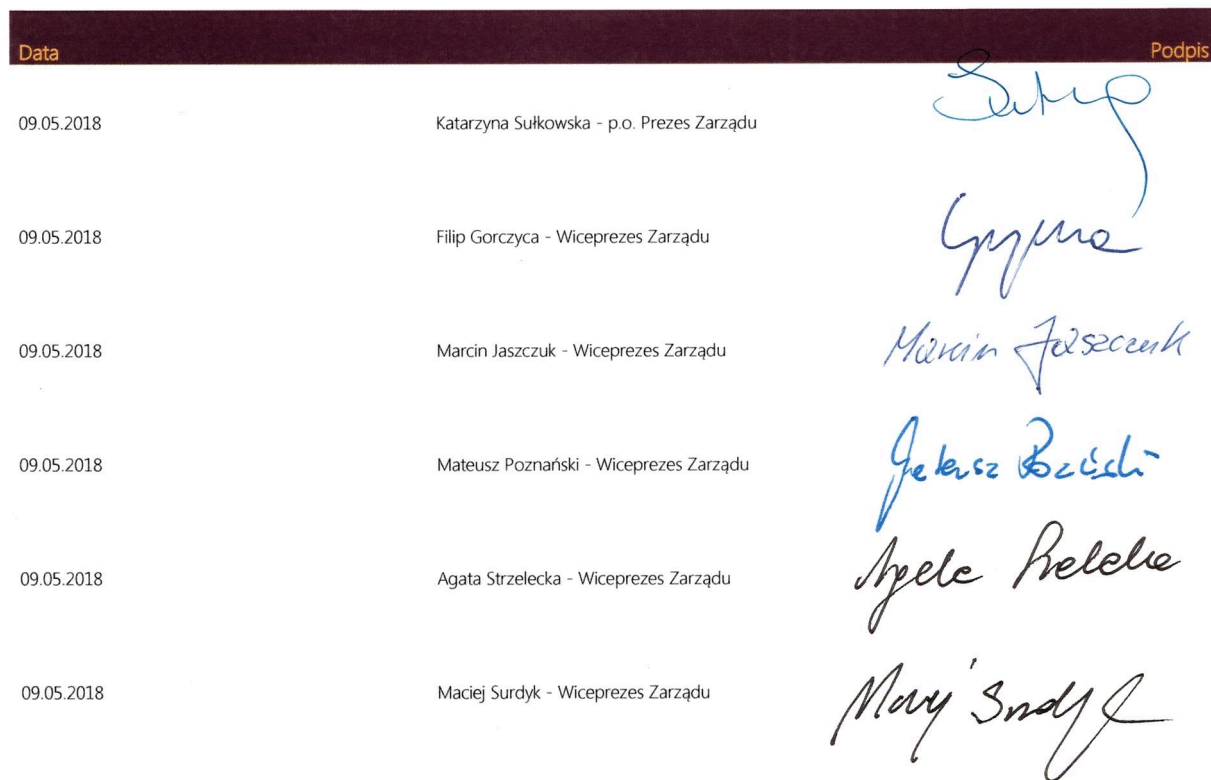 Data Podpis
09.05.2018 Katarzyna Sułkowska - p.o. Prezes Zarządu
09.05.2018 Filip Gorczyca - Wiceprezes Zarządu
09.05.2018 Marcin Jaszczuk - Wiceprezes Zarządu Marcin Jaszczuk
09.05.2018 Mateusz Poznański - Wiceprezes Zarządu
09.05.2018 Agata Strzelecka - Wiceprezes Zarządu
09.05.2018 Maciej Surdyk - Wiceprezes Zarządu